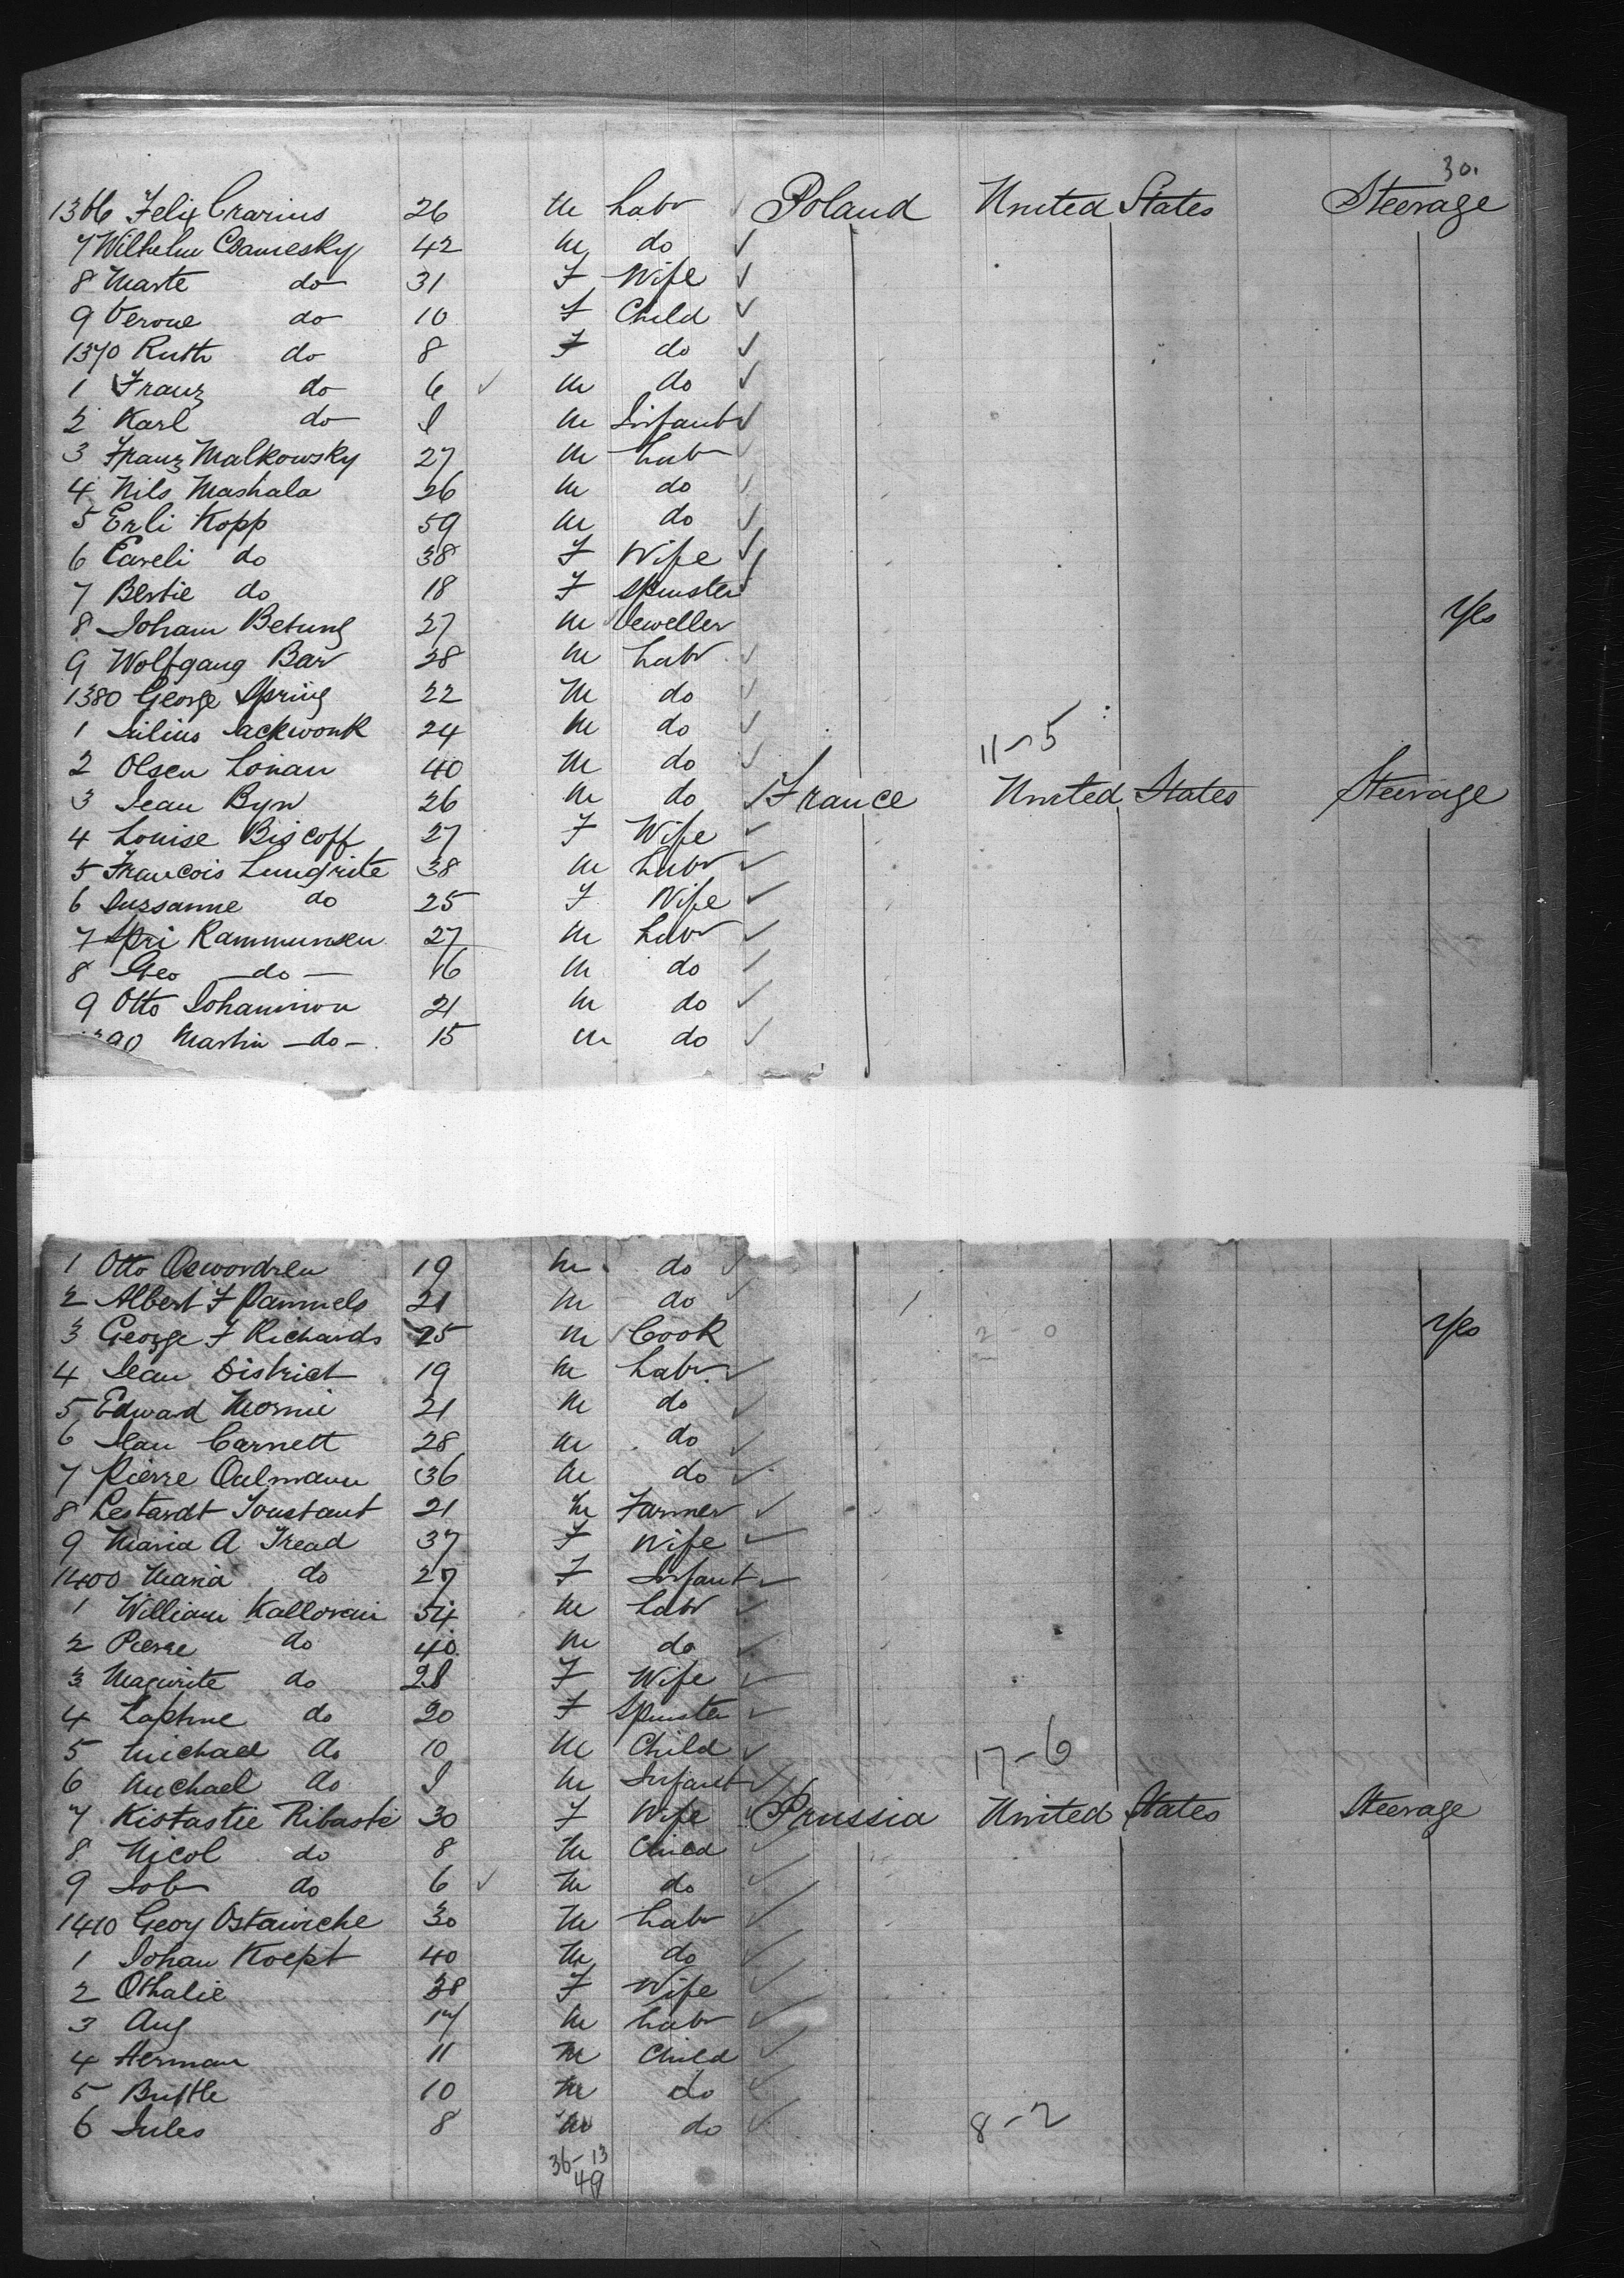 30.
1366 Felix Crarius 26 M Labr ✓ Poland United States Steerage
7 Wilhelm 42 M do ✓
8 Marte do 31 F Wife ✓
9 Verone do 10 F Child ✓
1370 Ruth do 8 F do ✓
1 Franz do 6 ✓ M do ✓
2 Karl do I M Infant ✓
3 Franz Malkowsky 27 M Labr ✓
4 Nils Mashala 26 M do ✓
5 Erli Kopp 59 M do ✓
6 Eareli do 38 F Wife ✓
7 Bertie do 18 F Spinster ✓
8 Joham Betung 27 M Jeweller Yes
9 Wolfgang Bar 28 M Labr ✓
1380 George Spring 22 M do ✓
1 Julius Jackwonk 24 M do ✓ 11-5
2 Olsen Lonan 40 M do ✓
3 Jean Byn 26 M do ✓ France United States Steerage
4 Louise Biscoff 27 F Wife ✓
5 Francois Lungrite 38 M Labr ✓
6 Sussanne do 25 F Wife ✓
7 Spri Rammunsen 27 M Labr ✓
8 Geo do 16 M do ✓
9 Otto 21 M do ✓
90 Martin do 15 M do ✓
1 Otto 19 M do ✓
2 Albert F Pammels 21 M do ✓
3 George F Richards 25 M Cook 2 0 Yes
4 Jean District 19 M Labr ✓
5 Edward Mornie 21 M do ✓
6 Jean Carnett 28 M do ✓
7 Pierre Oulmann 36 M do ✓
8 Lestardt Toustant 21 M Farmer ✓
9 Maria A Tread 37 F Wife ✓
1400 Maria do 27 F Infant ✓
1 William Kallovain 54 M Labr ✓
2 Pierre do 40 M do ✓
3 Magurite do 28 F Wife ✓
4 Laphne do 20 F Spinster ✓
5 Michael do 10 M Child ✓ 17-6
6 Michael do I M Infant ✓
7 Kistastie Ribastie 30 F Wife ✓ Prussia United States Steerage
8 Nicol do 8 M Child ✓
9 Job do 6 ✓ M do ✓
1410 Geoy Ostawiche 30 M Labr ✓
1 Johan Koept 40 M do ✓
2 Othalie 38 F Wife ✓
3 Aug 17 M Labr ✓
4 Herman 11 M Child ✓
5 Buttle 10 M do ✓
6 Jules 8 M do ✓ 8-2
36-13
49